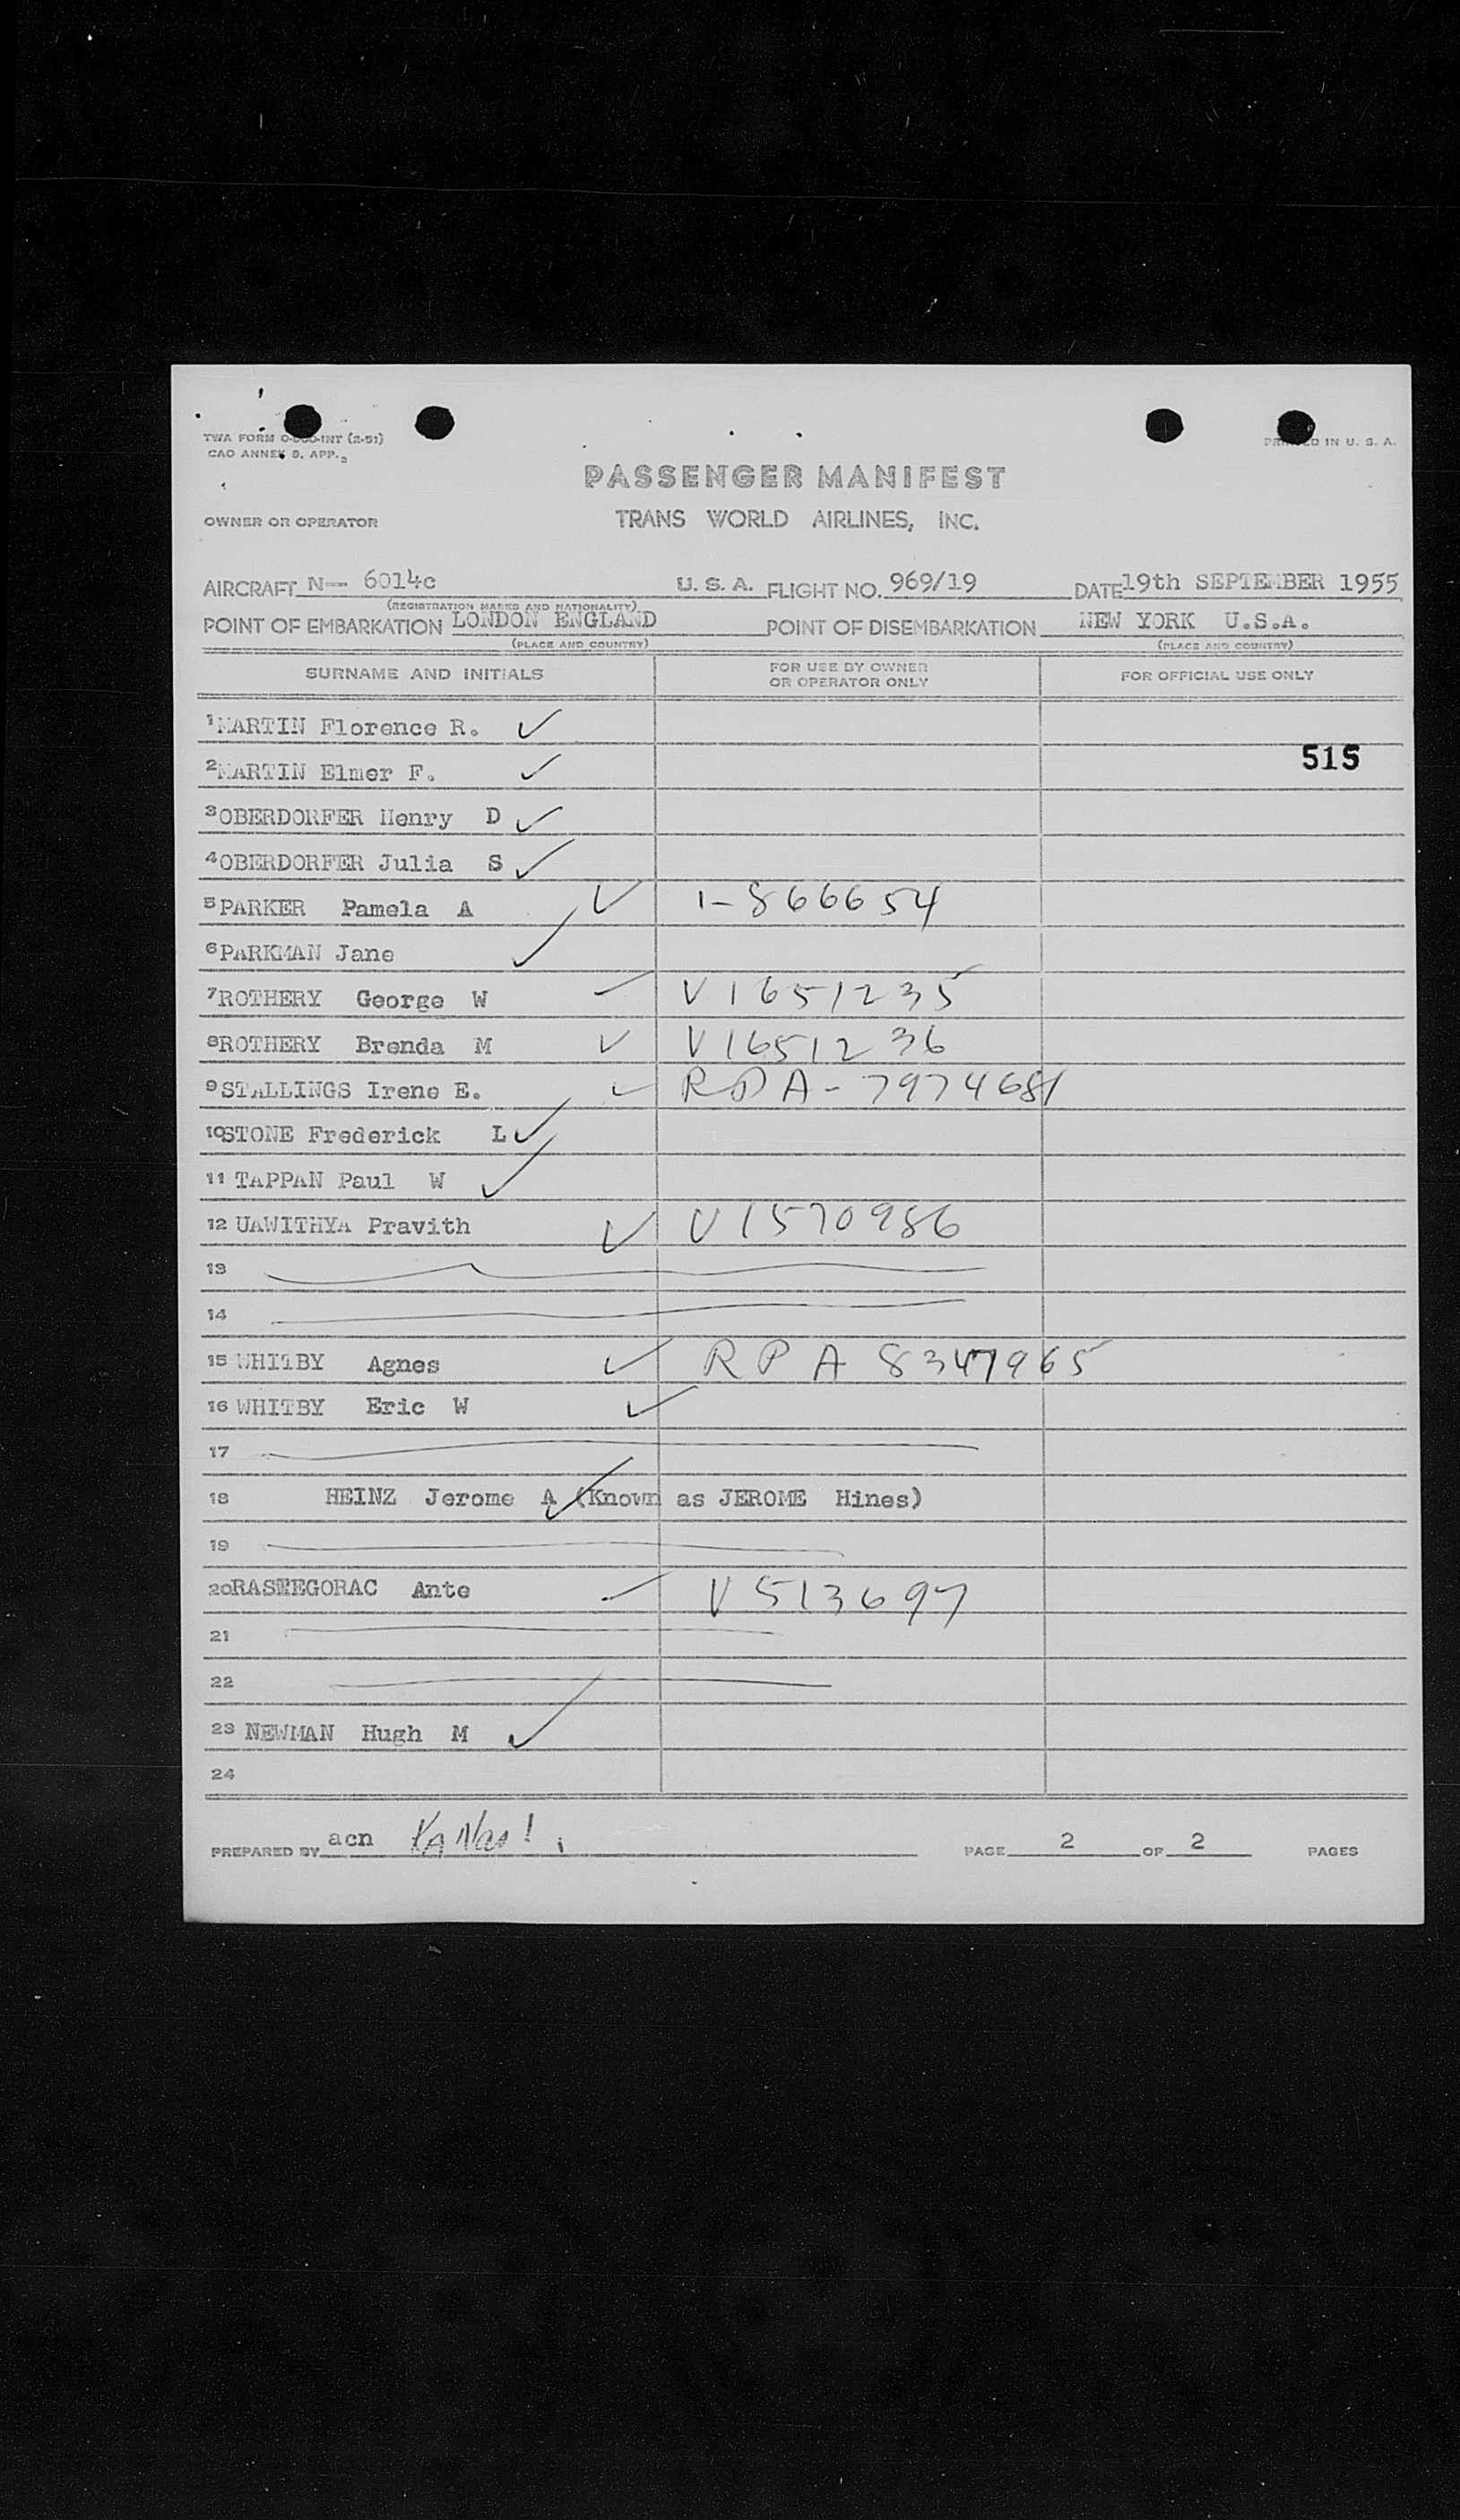 TWA FORM O-   -INT (2-51)
CAO ANNEX 9, APP. 2
PRINTED IN U. S. A.
PASSENGER MANIFEST
OWNER OR OPERATOR TRANS WORLD AIRLINES, INC.
AIRCRAFT N-- 6014c U. S. A. FLIGHT NO. 969/19 DATE 19th SEPTEMBER 1955
(REGISTRATION MARKS AND NATIONALITY)
POINT OF EMBARKATION LONDON ENGLAND POINT OF DISEMBARKATION NEW YORK U.S.A.
(PLACE AND COUNTRY) (PLACE AND COUNTRY)
SURNAME AND INITIALS FOR USE BY OWNER OR OPERATOR ONLY FOR OFFICIAL USE ONLY
1 MARTIN Florence R. ✓
515
2 MARTIN Elmer F. ✓
3 OBERDORFER Henry D ✓
4 OBERDORFER Julia S ✓
5 PARKER Pamela A ✓ 1-866654
6 PARKMAN Jane ✓
7 ROTHERY George W ✓ V1651235
8 ROTHERY Brenda M ✓ V1651236
9 STALLINGS Irene E. ✓ RPA-7974681
10 STONE Frederick L ✓
11 TAPPAN Paul W ✓
12 UAWITHYA Pravith ✓ V1570986
13
14
15 WHITBY Agnes ✓ RPA 8347965
16 WHITBY Eric W ✓
17
18 HEINZ Jerome A ✓ (Known as JEROME Hines)
19
20 RASTEGORAC Ante ✓ V513697
21
22
23 NEWMAN Hugh M ✓
24
PREPARED BY acn PAGE 2 OF 2 PAGES